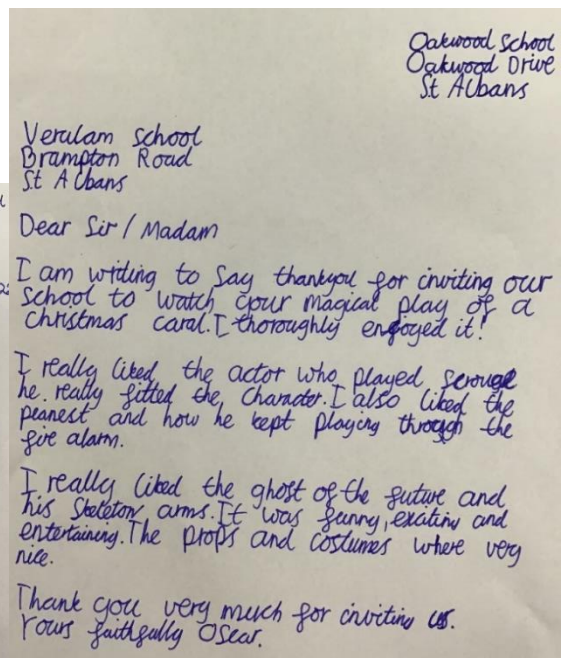 Oakwood School
Oakwood Drive
St Albans
Verulam School
Brampton Road
St Albans
Dear Sir / Madam
I am writing to say thankyou for inviting our
school to watch your magical play of a
christmas carol. I thoroughly enjoyed it!
I really liked the actor who played scrouge
he really fitted the character. I also liked the
peanest and how he kept playing through the
fire alarm.
I really liked the ghost of the future and
his skeleton arms. It was funny, exciting and
entertaining. The props and costumes where very
nice.
Thank you very much for inviting us.
Yours faithfully Oscar.